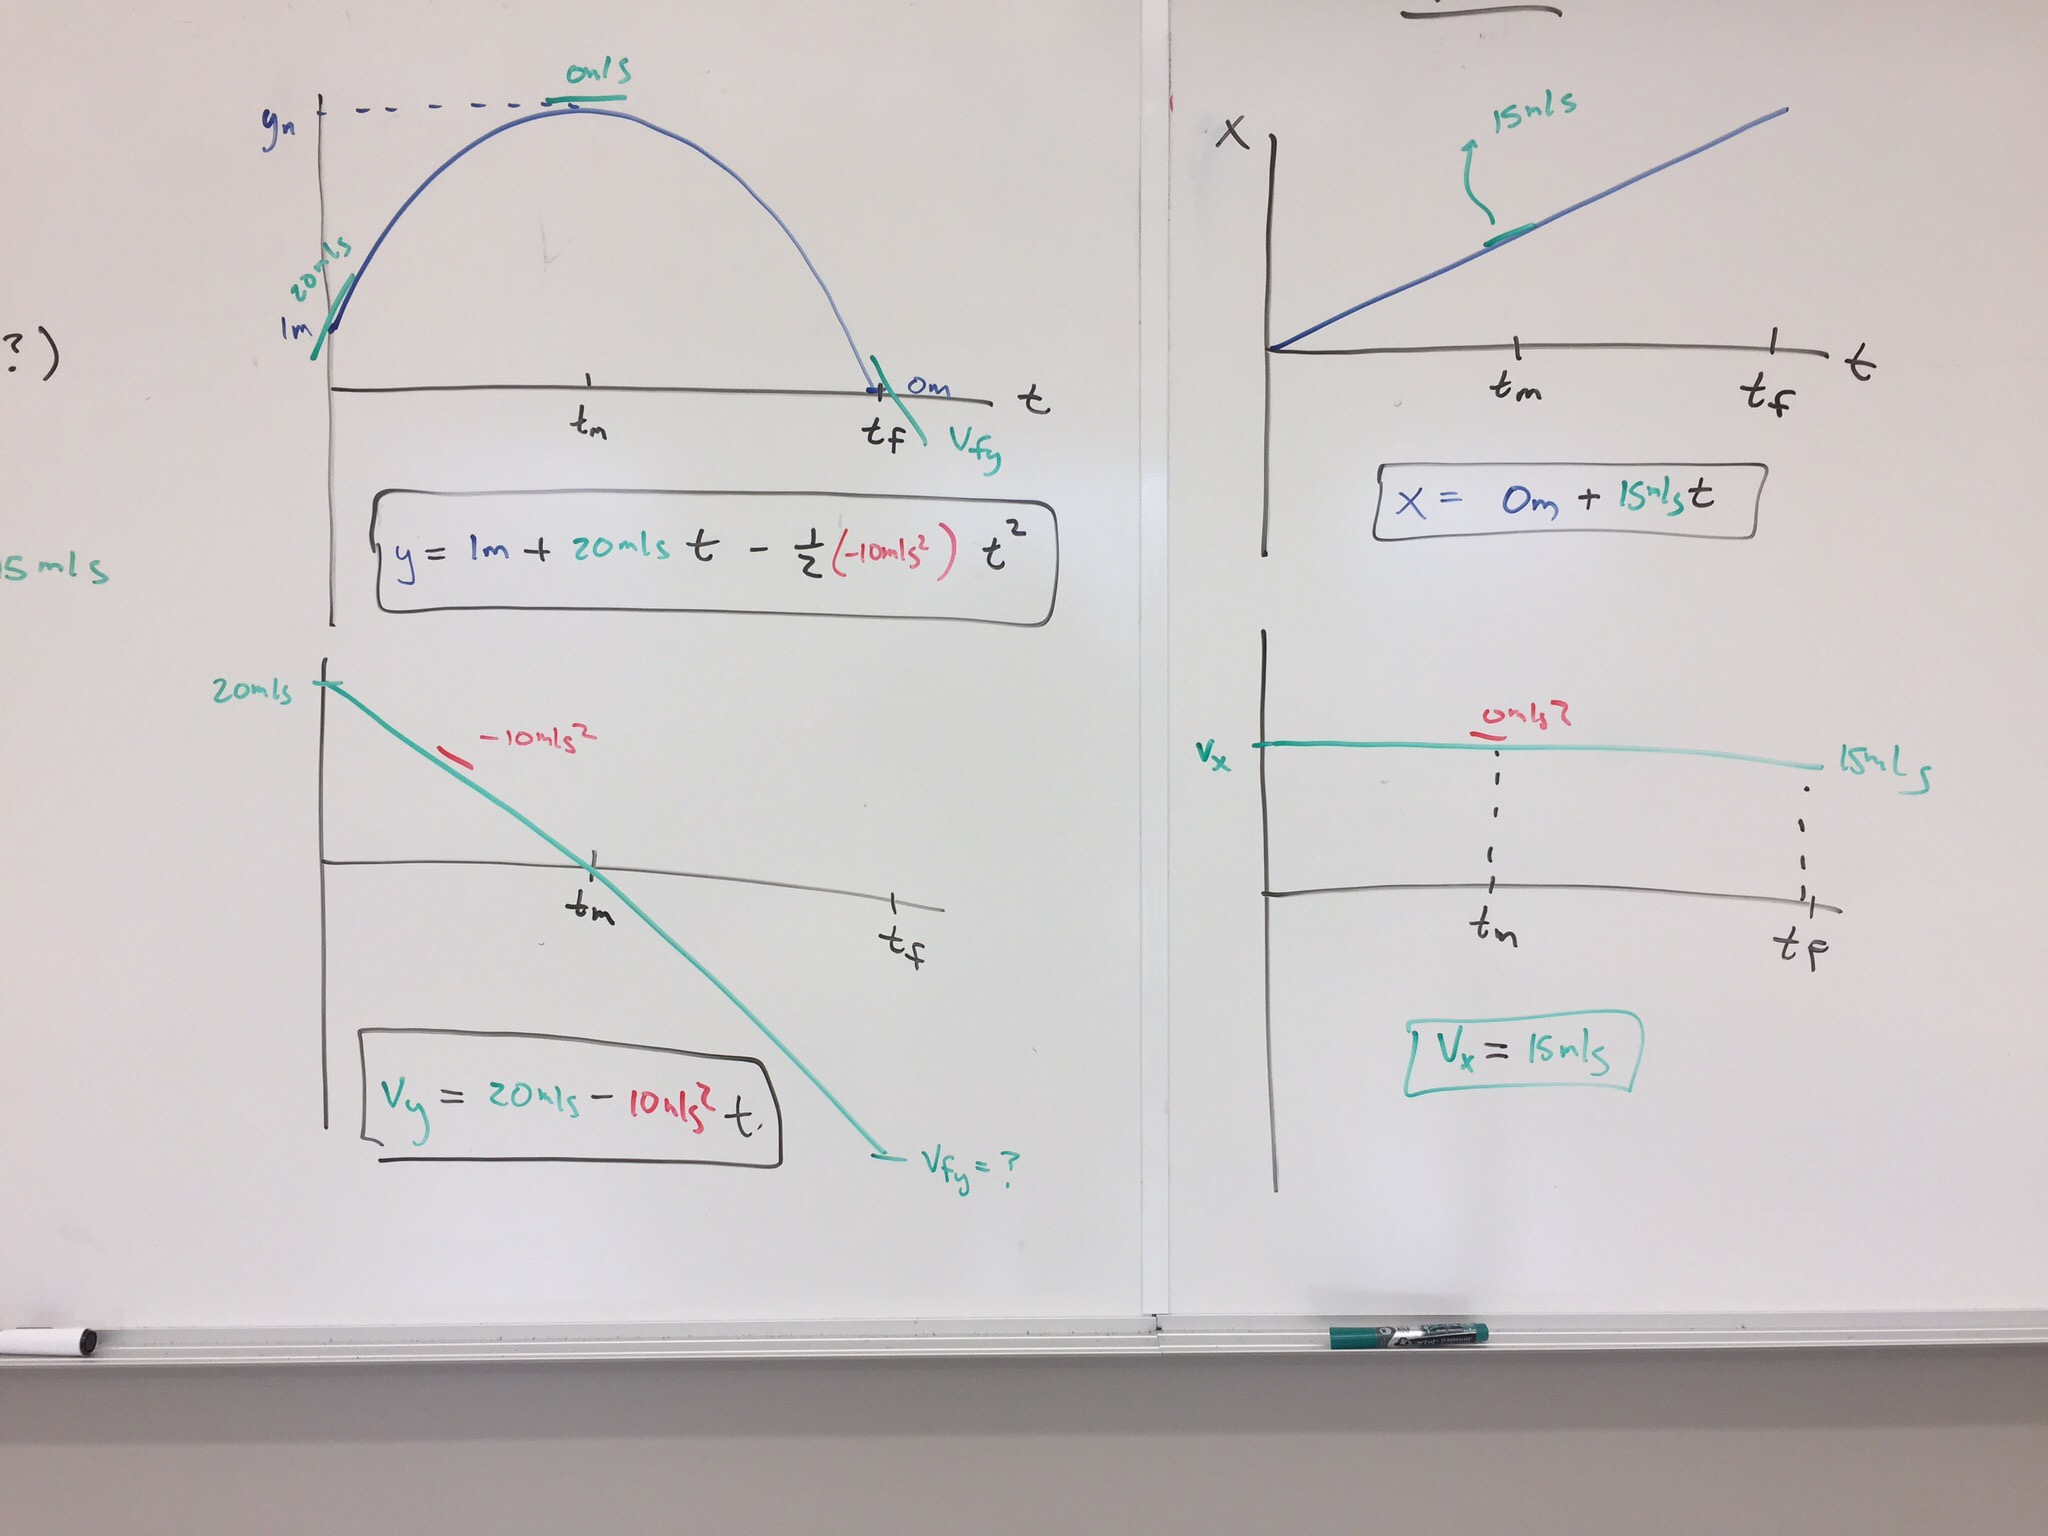 ?)
5m/s
0m/s
yₘ
20m/s
1m
tₘ
t_f
0m
t
V_fy
y = 1m + 20m/s t - ½(-10m/s²) t²
20m/s
-10m/s²
tₘ
t_f
V_y = 20m/s - 10m/s² t.
V_fy = ?
15m/s
X
tₘ
t_f
t
X = 0m + 15m/s t
0m/s²
Vₓ
15m/s
tₘ
t_f
Vₓ = 15m/s